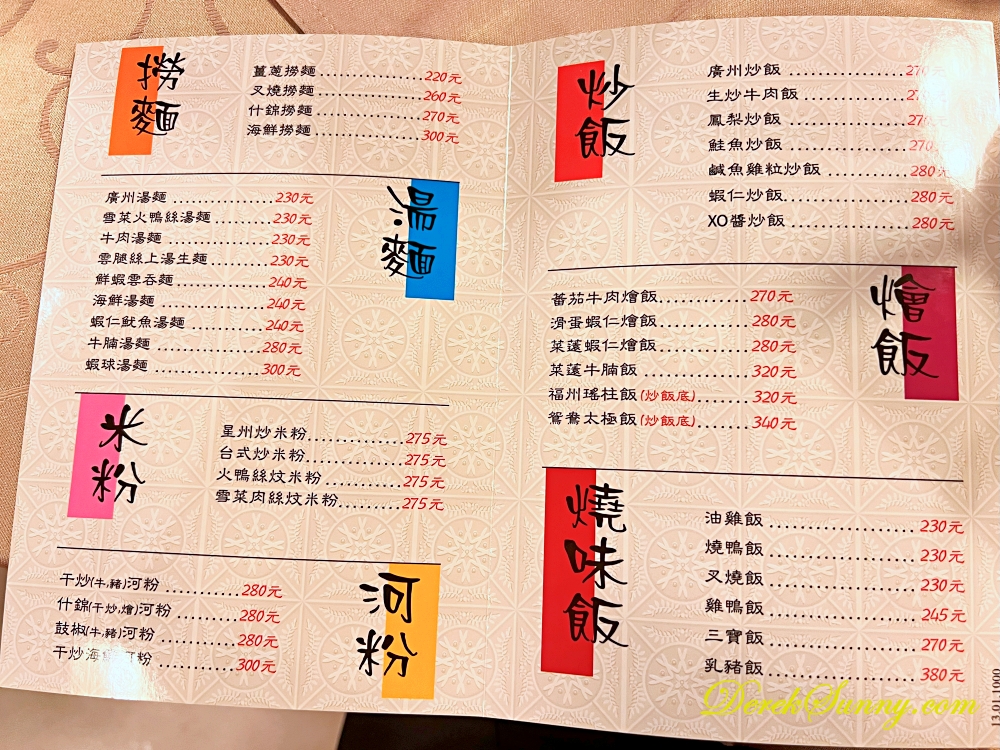 撈麵
薑蔥撈麵 220元
叉燒撈麵 260元
什錦撈麵 270元
海鮮撈麵 300元
湯麵
廣州湯麵 230元
雪菜火鴨絲湯麵 230元
牛肉湯麵 230元
雲腿絲上湯生麵 230元
鮮蝦雲吞麵 240元
海鮮湯麵 240元
蝦仁魷魚湯麵 240元
牛腩湯麵 280元
蝦球湯麵 300元
米粉
星州炒米粉 275元
台式炒米粉 275元
火鴨絲炆米粉 275元
雪菜肉絲炆米粉 275元
河粉
干炒(牛,豬)河粉 280元
什錦(干炒,燴)河粉 280元
鼓椒(牛,豬)河粉 280元
干炒海鮮河粉 300元
炒飯
廣州炒飯 270元
生炒牛肉飯
鳳梨炒飯 270元
鮭魚炒飯 270元
鹹魚雞粒炒飯 280元
蝦仁炒飯 280元
XO醬炒飯 280元
燴飯
蕃茄牛肉燴飯 270元
滑蛋蝦仁燴飯 280元
菜薳蝦仁燴飯 280元
菜薳牛腩飯 320元
福州瑤柱飯(炒飯底) 320元
鴛鴦太極飯(炒飯底) 340元
燒味飯
油雞飯 230元
燒鴨飯 230元
叉燒飯 230元
雞鴨飯 245元
三寶飯 270元
乳豬飯 380元
DerekSunny.com
13.01.1000